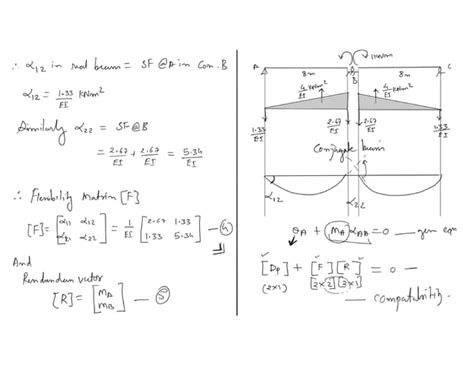 ∴ α12 in real beam = SF @ A in Con. B
α12 = 1.33/EI kNm²
Similarly α22 = SF @ B
= 2.67/EI + 2.67/EI = 5.34/EI
∴ Flexibility Matrix [F]
[F] = [α11 α12 / α21 α22] = 1/EI [2.67 1.33 / 1.33 5.34] — 4
And
Rendundan vector
[R] = [MA / MB] — 5
1 kNm
A B C
8m 8m
4/EI kNm² 4/EI kNm²
1.33/EI 2.67/EI 2.67/EI 1.33/EI
Conjugate beam
α12 α22
θA + MA αAA = 0 — gen eqn
[Dp] + [F] [R] = 0 —
(2x1) [2x2] [2x1]
— compatability.